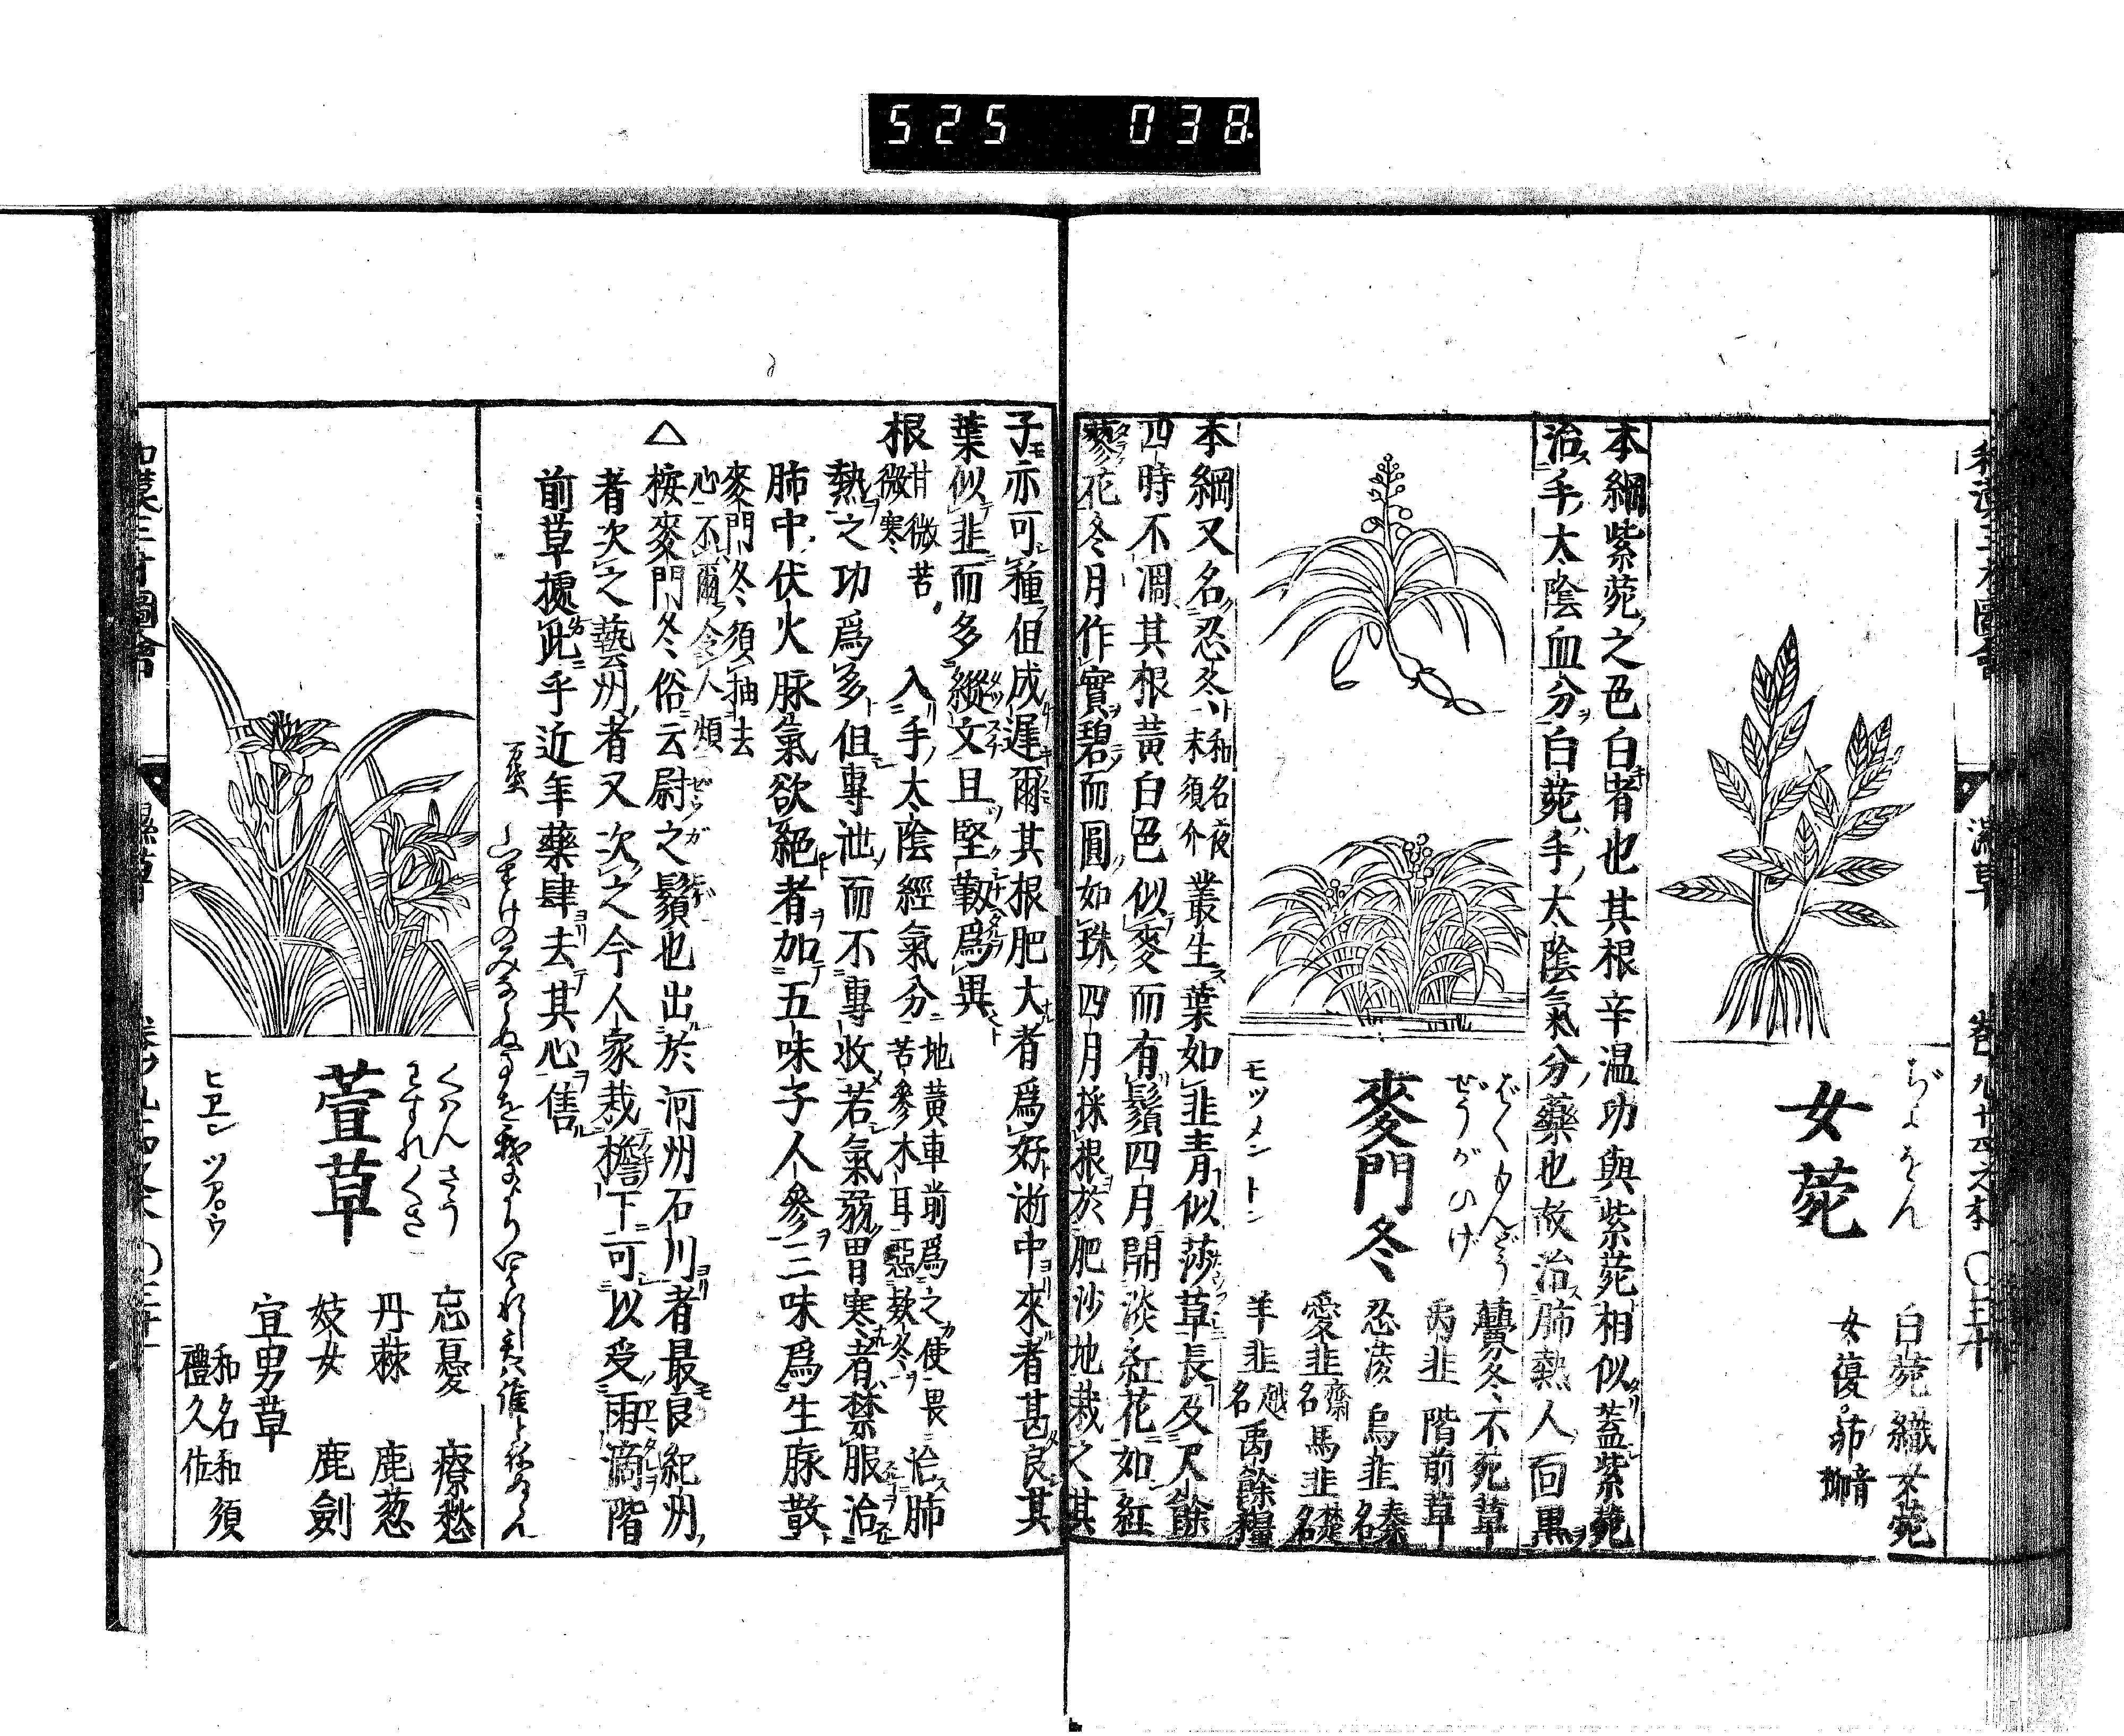 525 038
和漢三才圖會 濕草 卷九十四之本 〇三十
ぢよをん
女菀
白菀 織女菀
女復 茆 音柳
本綱紫菀之色白者也其根辛温功與紫菀相似蓋紫菀
治手太陰血分白菀手太陰氣分藥也故治肺熱人面黒
ばくもんどう
ぜうがひげ
麥門冬
モツメントン
虋冬 不死草
禹韭 階前草
忍凌 烏韭 秦名
愛韭 齊名 馬韭 楚名
羊韭 越名 禹餘糧
本綱又名忍冬 和名夜末須介 叢生葉如韭青似莎草長及尺餘
四時不凋其根黃白色似麥而有鬚四月開淡紅花如紅
蓼花冬月作實碧而圓如珠四月採根於肥沙地栽之其
子亦可種但成遲爾其根肥大者爲好浙中來者甚良其
葉似韭而多縱文且堅靱爲異
根 甘微苦微寒 入手太陰經氣分 地黃車前爲之使畏苦參木耳惡欵冬 治肺
熱之功爲多但專泄而不專收若氣弱胃寒者禁服治
肺中伏火脉氣欲絕者加五味子人參三味爲生脉散
麥門冬須抽去
心不爾令人煩
△按麥門冬俗云尉之鬚也出於河州石川者最良紀州
者次之藝州者又次之今人家栽檐下可以受雨滴階
前草據此乎近年藥肆去其心售
くはんさう
わすれくさ
萱草
ヒエン ツアロウ
忘憂 療愁
丹棘 鹿葱
妓女 鹿劍
宜男草
和名和須
禮久佐